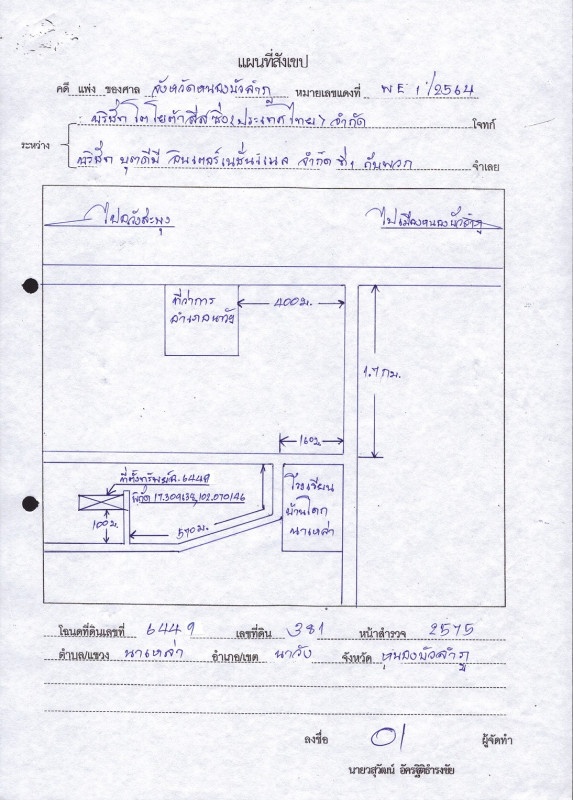 แผนที่สังเขป
คดี แพ่ง ของศาล จังหวัดหนองบัวลำภู หมายเลขแดงที่ ผบE 1/2564
บริษัท โตโยต้า ลีสซิ่ง (ประเทศไทย) จำกัด โจทก์
ระหว่าง
บริษัท บุตดีมี อินเตอร์เนชั่นแนล จำกัด ที่1 กับพวก จำเลย
ไปวังสะพุง
ไปเมืองหนองบัวลำภู
ที่ว่าการ
อำเภอนาวัง
400 ม.
1.7 กม.
160ม.
ที่ตั้งทรัพย์ฉ. 6449
พิกัด 17.309138,102.070146
100 ม.
570 ม.
โรงเรียน
บ้านโคก
นาเหล่า
โฉนดที่ดินเลขที่ 6449 เลขที่ดิน 381 หน้าสำรวจ 2575
ตำบล/แขวง นาเหล่า อำเภอ/เขต นาวัง จังหวัด หนองบัวลำภู
ลงชื่อ ผู้จัดทำ
นายวสุวัฒน์ อัครฐิติธำรงชัย